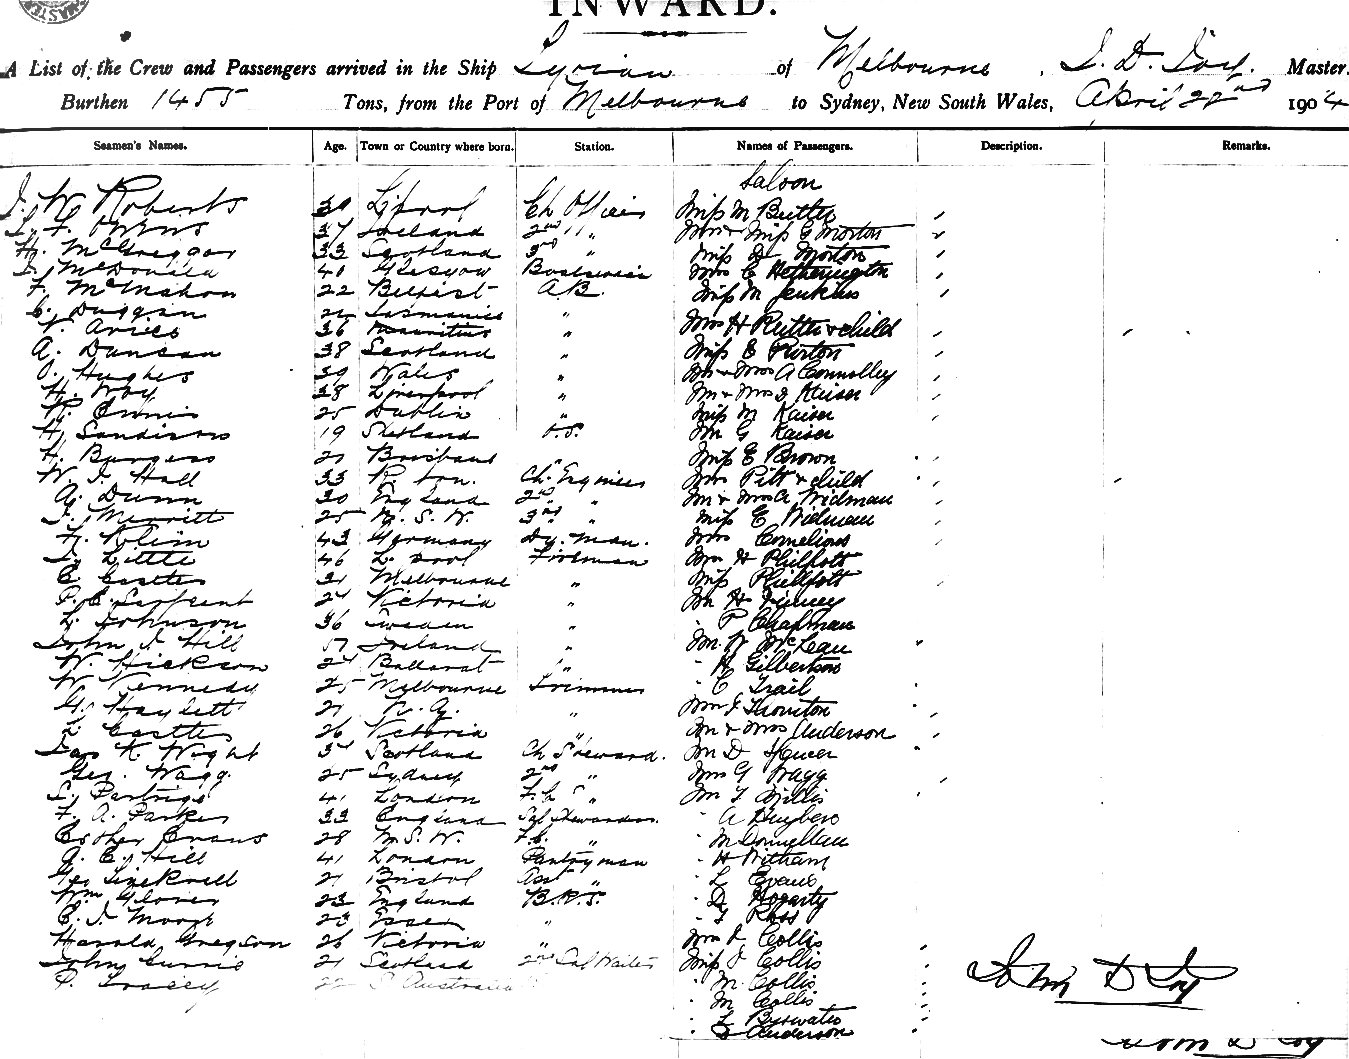 INWARD.
A List of the Crew and Passengers arrived in the Ship Syrian of Melbourne, J. D. Joy. Master.
Burthen 1455 Tons, from the Port of Melbourne to Sydney, New South Wales, April 22nd 1904
Seamen's Names. Age. Town or Country where born. Station. Names of Passengers. Description. Remarks.
Saloon
J. W. Roberts 30 L'pool Ch. Officer Miss M Butler
Owens 37 Ireland 2nd " Mrs & Miss E Morton
H. McGregor 33 Scotland 3rd " Miss Morton
McDonald 40 Glasgow Boatswain Mrs C Hetherington
F. McMahon 22 Belfast A.B. Miss M Jenkins
C. Duggan Tasmania "
Aries 36 Mauritius " Mrs H Rutter & child
A. Duncan 38 Scotland " Miss E Purton
O. Hughes 30 Wales " Mr & Mrs A Connolley
H. Way 38 Liverpool " Mr & Mrs J Kaiser
25 Dublin " Miss M Kaiser
H. Sandison 19 Shetland O.S. Mr G Kaiser
H. Burgess 21 Brisbane Miss E Brown
W. J. Hall 33 Ch. Engineer Mrs Pitt & child
A. Dunn 30 England 2nd " Mr & Mrs A Widman
J. Merritt 25 N. S. W. 3rd " Miss E Widman
Klein 43 Germany Dy. Man. Mrs Cornelious
J. Little 46 L. pool Fireman Mrs H Phillpott
E. Castles 31 Melbourne " Miss Phillpott
P. C. Sargent 24 Victoria " Mr H Finney
L. Johnson 36 Sweden " " P Chapman
John J. Hill 57 Ireland " Mr W McLean
W. Hickson 24 Ballarat " " H Gilbertson
W. Kennedy 25 Melbourne Trimmer " C Trail
G. Haylett 21 N. Z. " Mrs J Thornton
L. Castles 26 Victoria Mr & Mrs Anderson
Jas K. Wight 34 Scotland Ch Steward. Mr D Spencer
Geo. Wagg. 25 Sydney 2nd " Mrs G Wagg
41 London F.C. " Mr T Willis
F. A. Parker 33 England Sal Stewardess " A
Esther Evans 28 N.S.W. F.C. " " M Donnellan
A. E. Hill 41 London Pantryman " H Witham
Geo 21 Bristol Asst " " L Evans
Wm Glover 23 England B.R.S. " Hogarty
C. J. Moore 23 Essex " " Ross
Harold Gregson 26 Victoria " Mrs J Collis
John Currie 21 Scotland 2nd Sal Waiter Miss J Collis
P. Tracey 22 S. Australia " M. Collis
" M Collis
" L Bywater
" Anderson
John D Joy
John D Joy